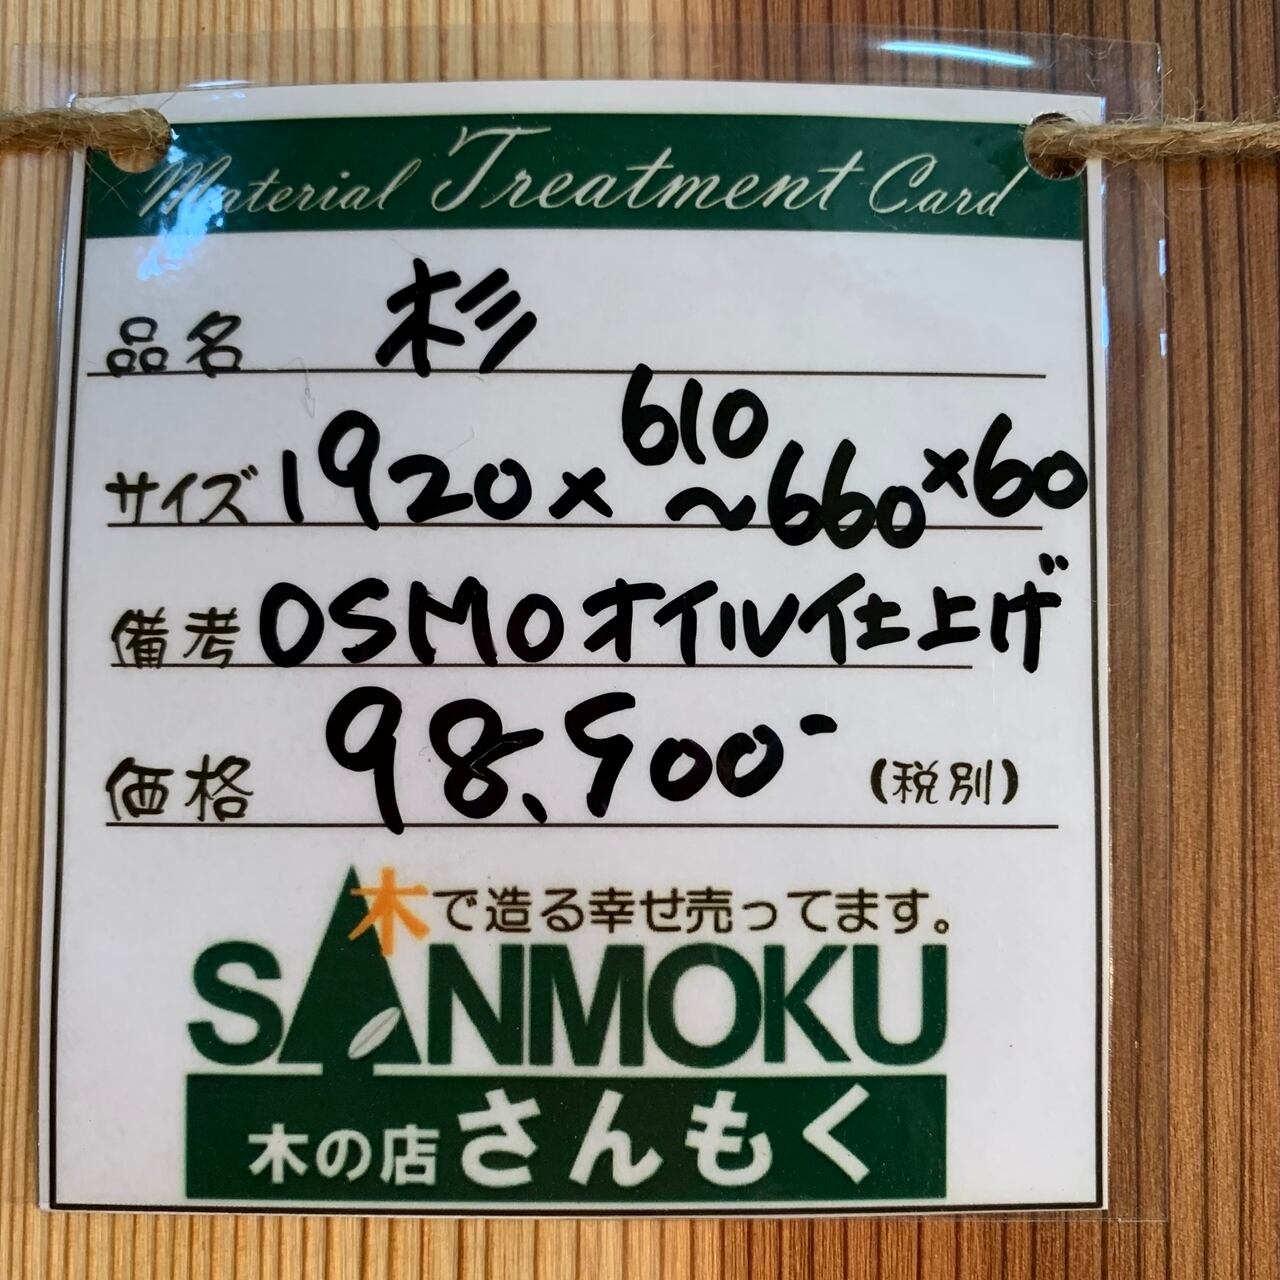 Material Treatment Card
品名 杉
サイズ 1920×610～660×60
備考 OSMOオイル仕上げ
価格 98,900- (税別)
木で造る幸せ売ってます。
SANMOKU
木の店 さんもく